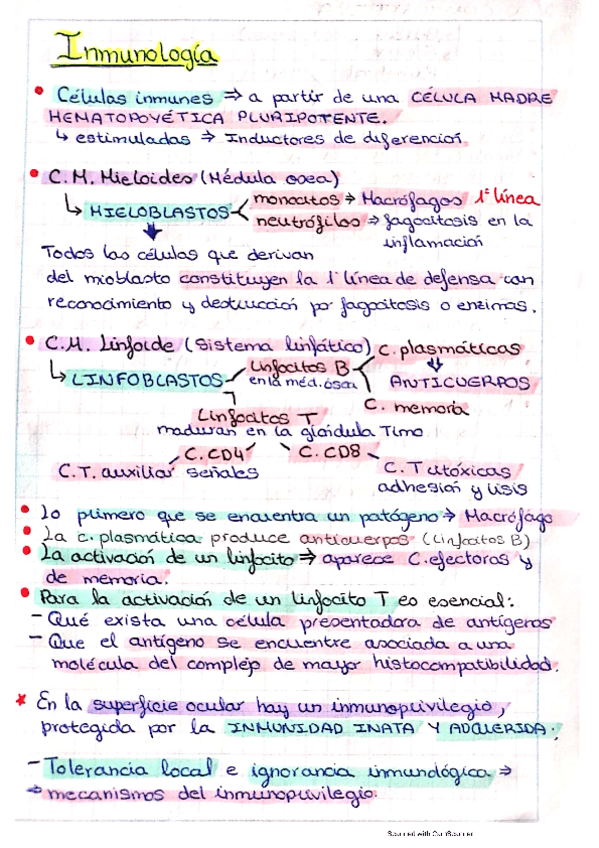 Inmunología
• Células inmunes ⇒ a partir de una CÉLULA MADRE
HEMATOPOYÉTICA PLURIPOTENTE.
↳ estimuladas ⇒ Inductores de diferención.
• C.M. Mieloides (Médula osea)
monocitos ⇒ Macrófagos 1ª línea
↳ MIELOBLASTOS
neutrófilos ⇒ fagocitosis en la
inflamación
Todos las células que derivan
del mioblasto constituyen la 1ª línea de defensa con
reconocimiento y destrucción por fagocitosis o enzimas.
• C.M. Linfoide (Sistema linfático)
C. plasmáticas
Linfocitos B
↳ LINFOBLASTOS
en la méd. ósea
ANTICUERPOS
C. memoria
Linfocitos T
maduran en la glándula Timo
C.CD4 C.CD8
C.T. auxiliar señales
C.T citóxicas
adhesión y lisis
• Lo primero que se encuentra un patógeno → Macrófago
• La c. plasmática produce anticuerpos (Linfocitos B)
• La activación de un linfocito ⇒ aparece C.efectoras y
de memoria.
• Para la activación de un linfocito T es esencial:
- Qué exista una célula presentadora de antígenos
- Que el antígeno se encuentre asociada a una
molécula del complejo de mayor histocompatibilidad.
* En la superficie ocular hay un inmunoprivilegio,
protegida por la INMUNIDAD INATA Y ADQUERIDA.
- Tolerancia local e ignorancia inmunológica ⇒
→ mecanismos del inmunoprivilegio.
Scanned with CamScanner